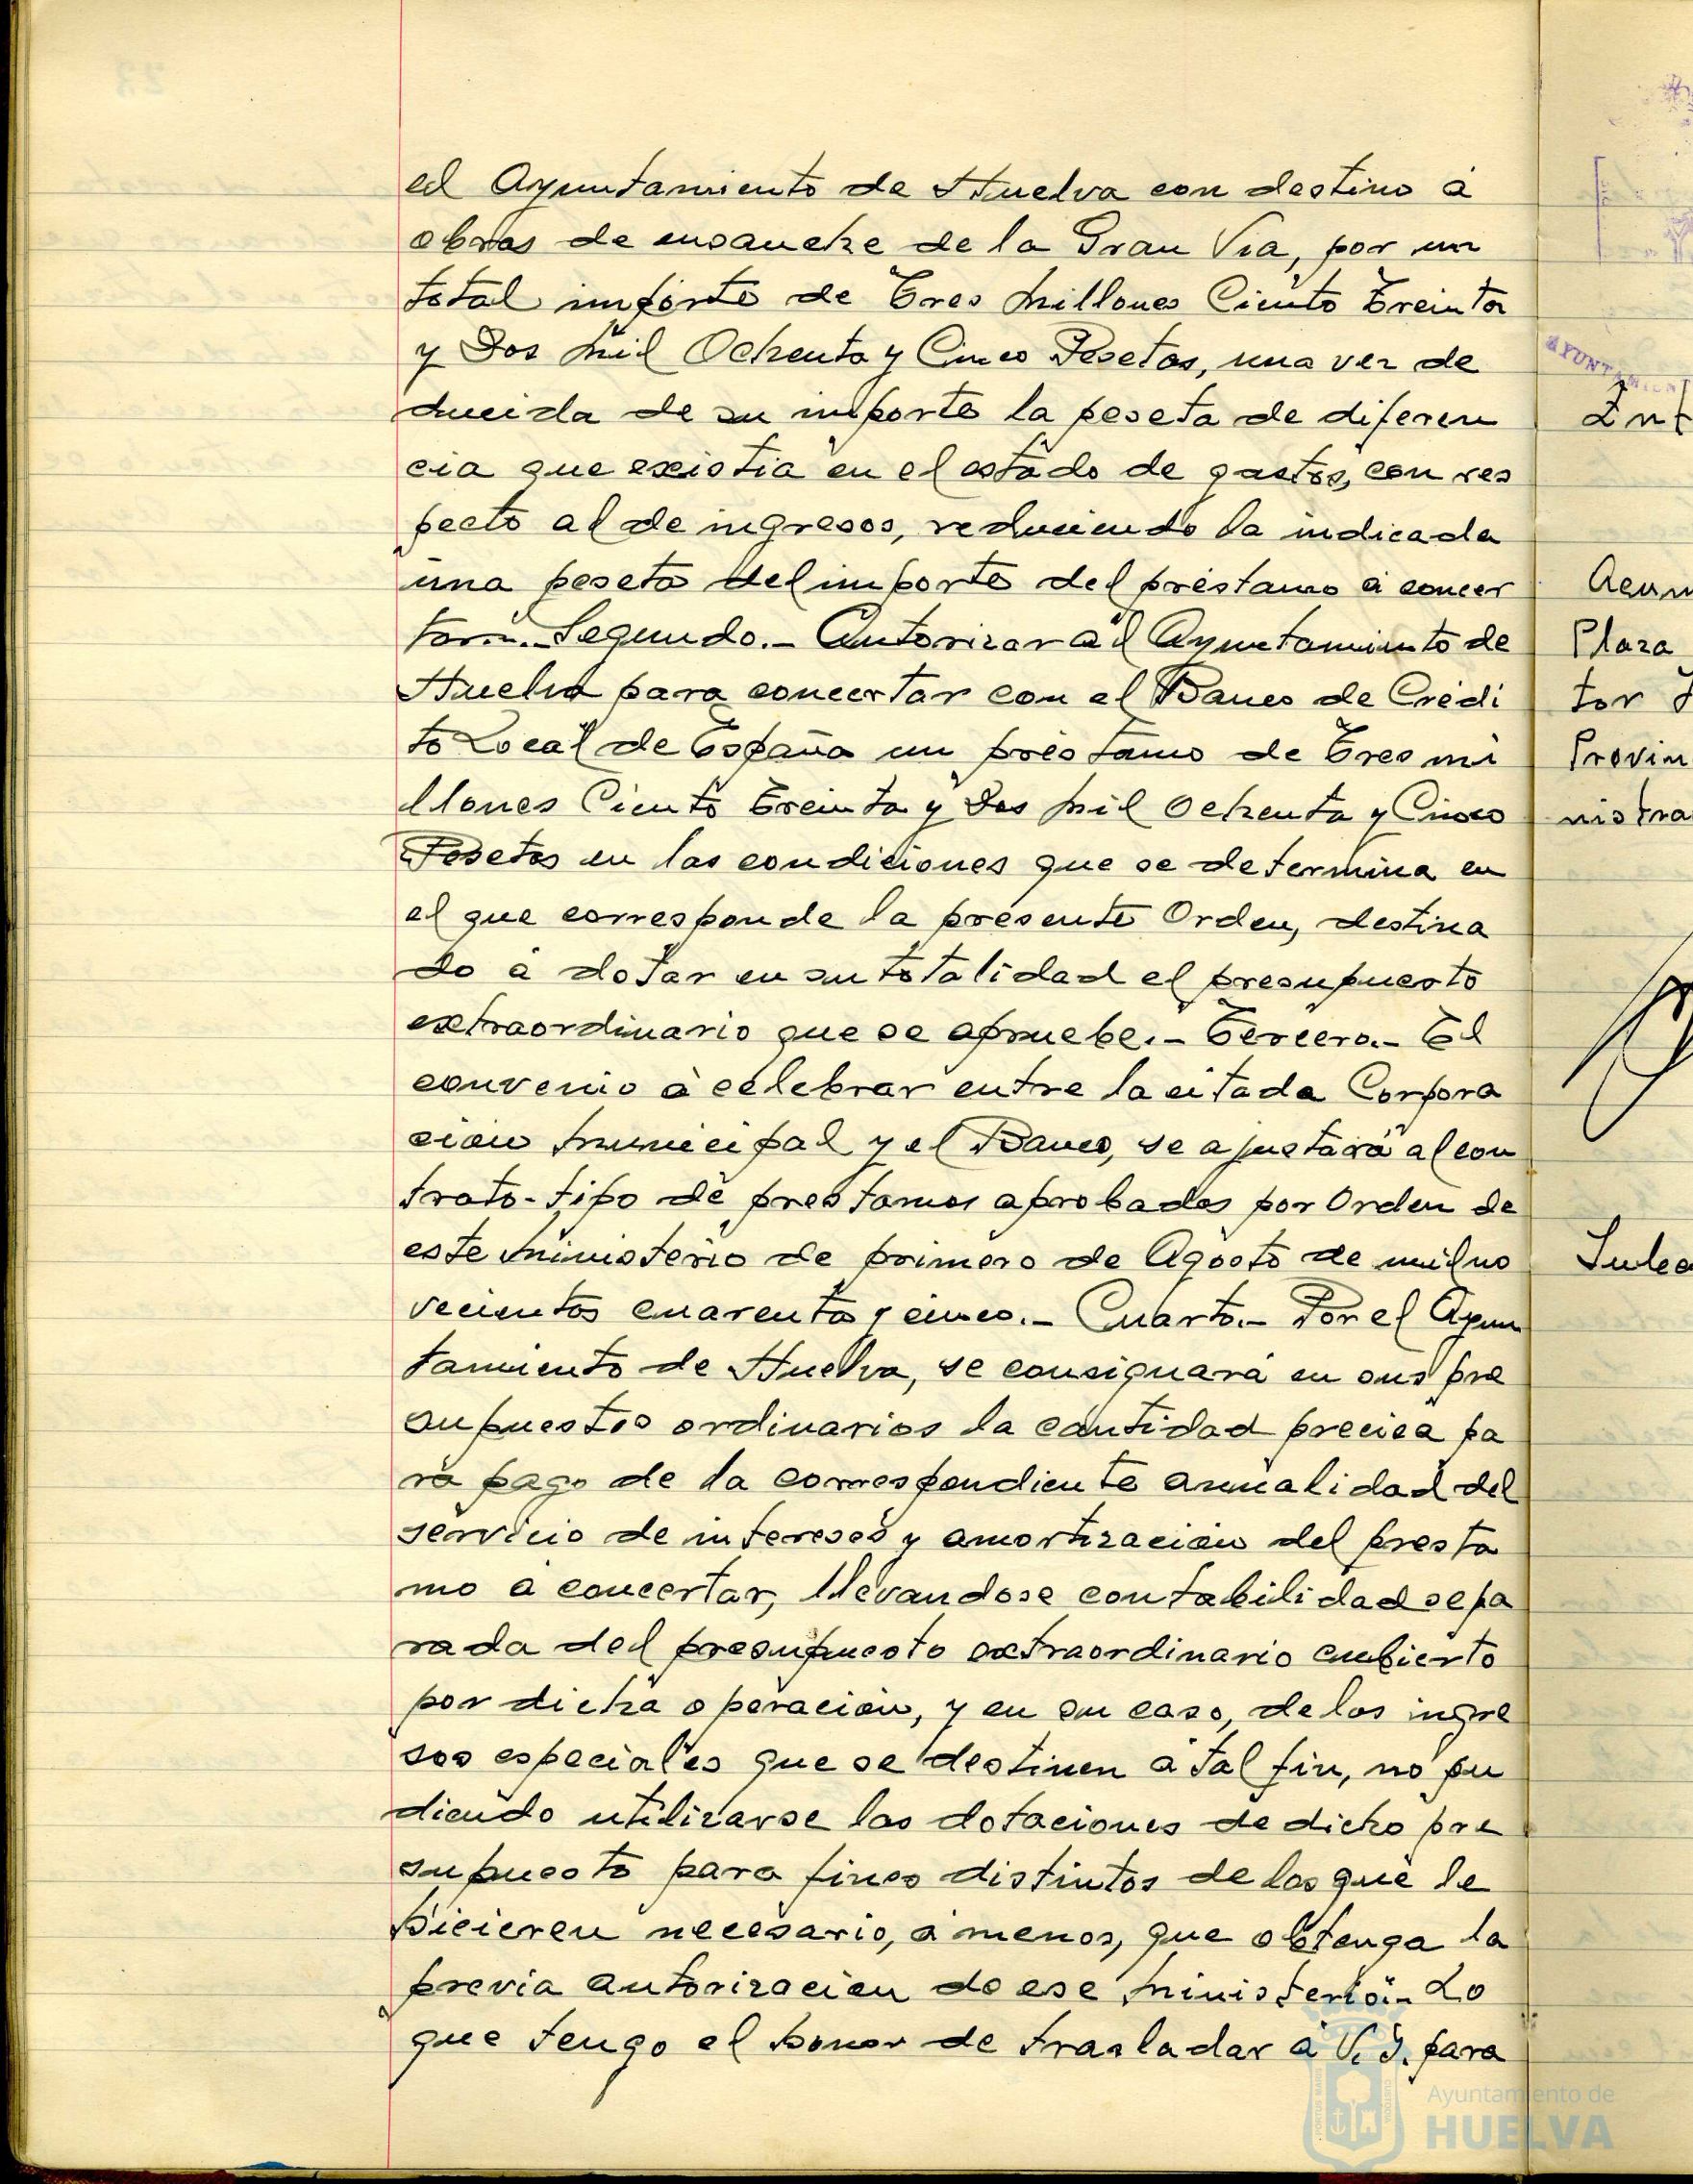 el Ayuntamiento de Huelva con destino á
obras de ensanche de la Gran Via, por un
total importe de Tres Millones Ciento Treinta
y Dos Mil Ochenta y Cinco Pesetas, una vez de
ducida de su importe la peseta de diferen
cia que existia en el estado de gastos, con res
pecto al de ingresos, reduciendo la indicada
una peseta del importe del préstamo á concer
tar.- Segundo.- Autorizar al Ayuntamiento de
Huelva para concertar con el Banco de Crédi
to Local de España un préstamo de Tres mi
llones Ciento Treinta y Dos Mil Ochenta y Cinco
Pesetas en las condiciones que se determina en
el que corresponde la presente Orden, destina
do á dotar en su totalidad el presupuesto
extraordinario que se apruebe.- Tercero.- El
convenio á celebrar entre la citada Corpora
ción Municipal y el Banco, se ajustará al con
trato-tipo de prestamos aprobados por Orden de
este Ministerio de primero de Agosto de mil no
vecientos cuarenta y cinco.- Cuarto.- Por el Ayun
tamiento de Huelva, se consignará en sus pre
supuestos ordinarios la cantidad precisa pa
ra pago de la correspondiente anualidad del
servicio de intereses y amortización del presta
mo á concertar, llevandose contabilidad sepa
rada del presupuesto extraordinario cubierto
por dicha operación, y en su caso, de los ingre
sos especiales que se destinen á tal fin, no pu
diendo utilizarse las dotaciones de dicho pre
supuesto para fines distintos de los que le
hicieren necesario, á menos, que obtenga la
previa autorizacion de ese Ministerio.- Lo
que tengo el honor de trasladar á V. I. para
AYUNTAMIEN
Int
Plaza
tor
Provin
nistra
Ayuntamiento de
HUELVA